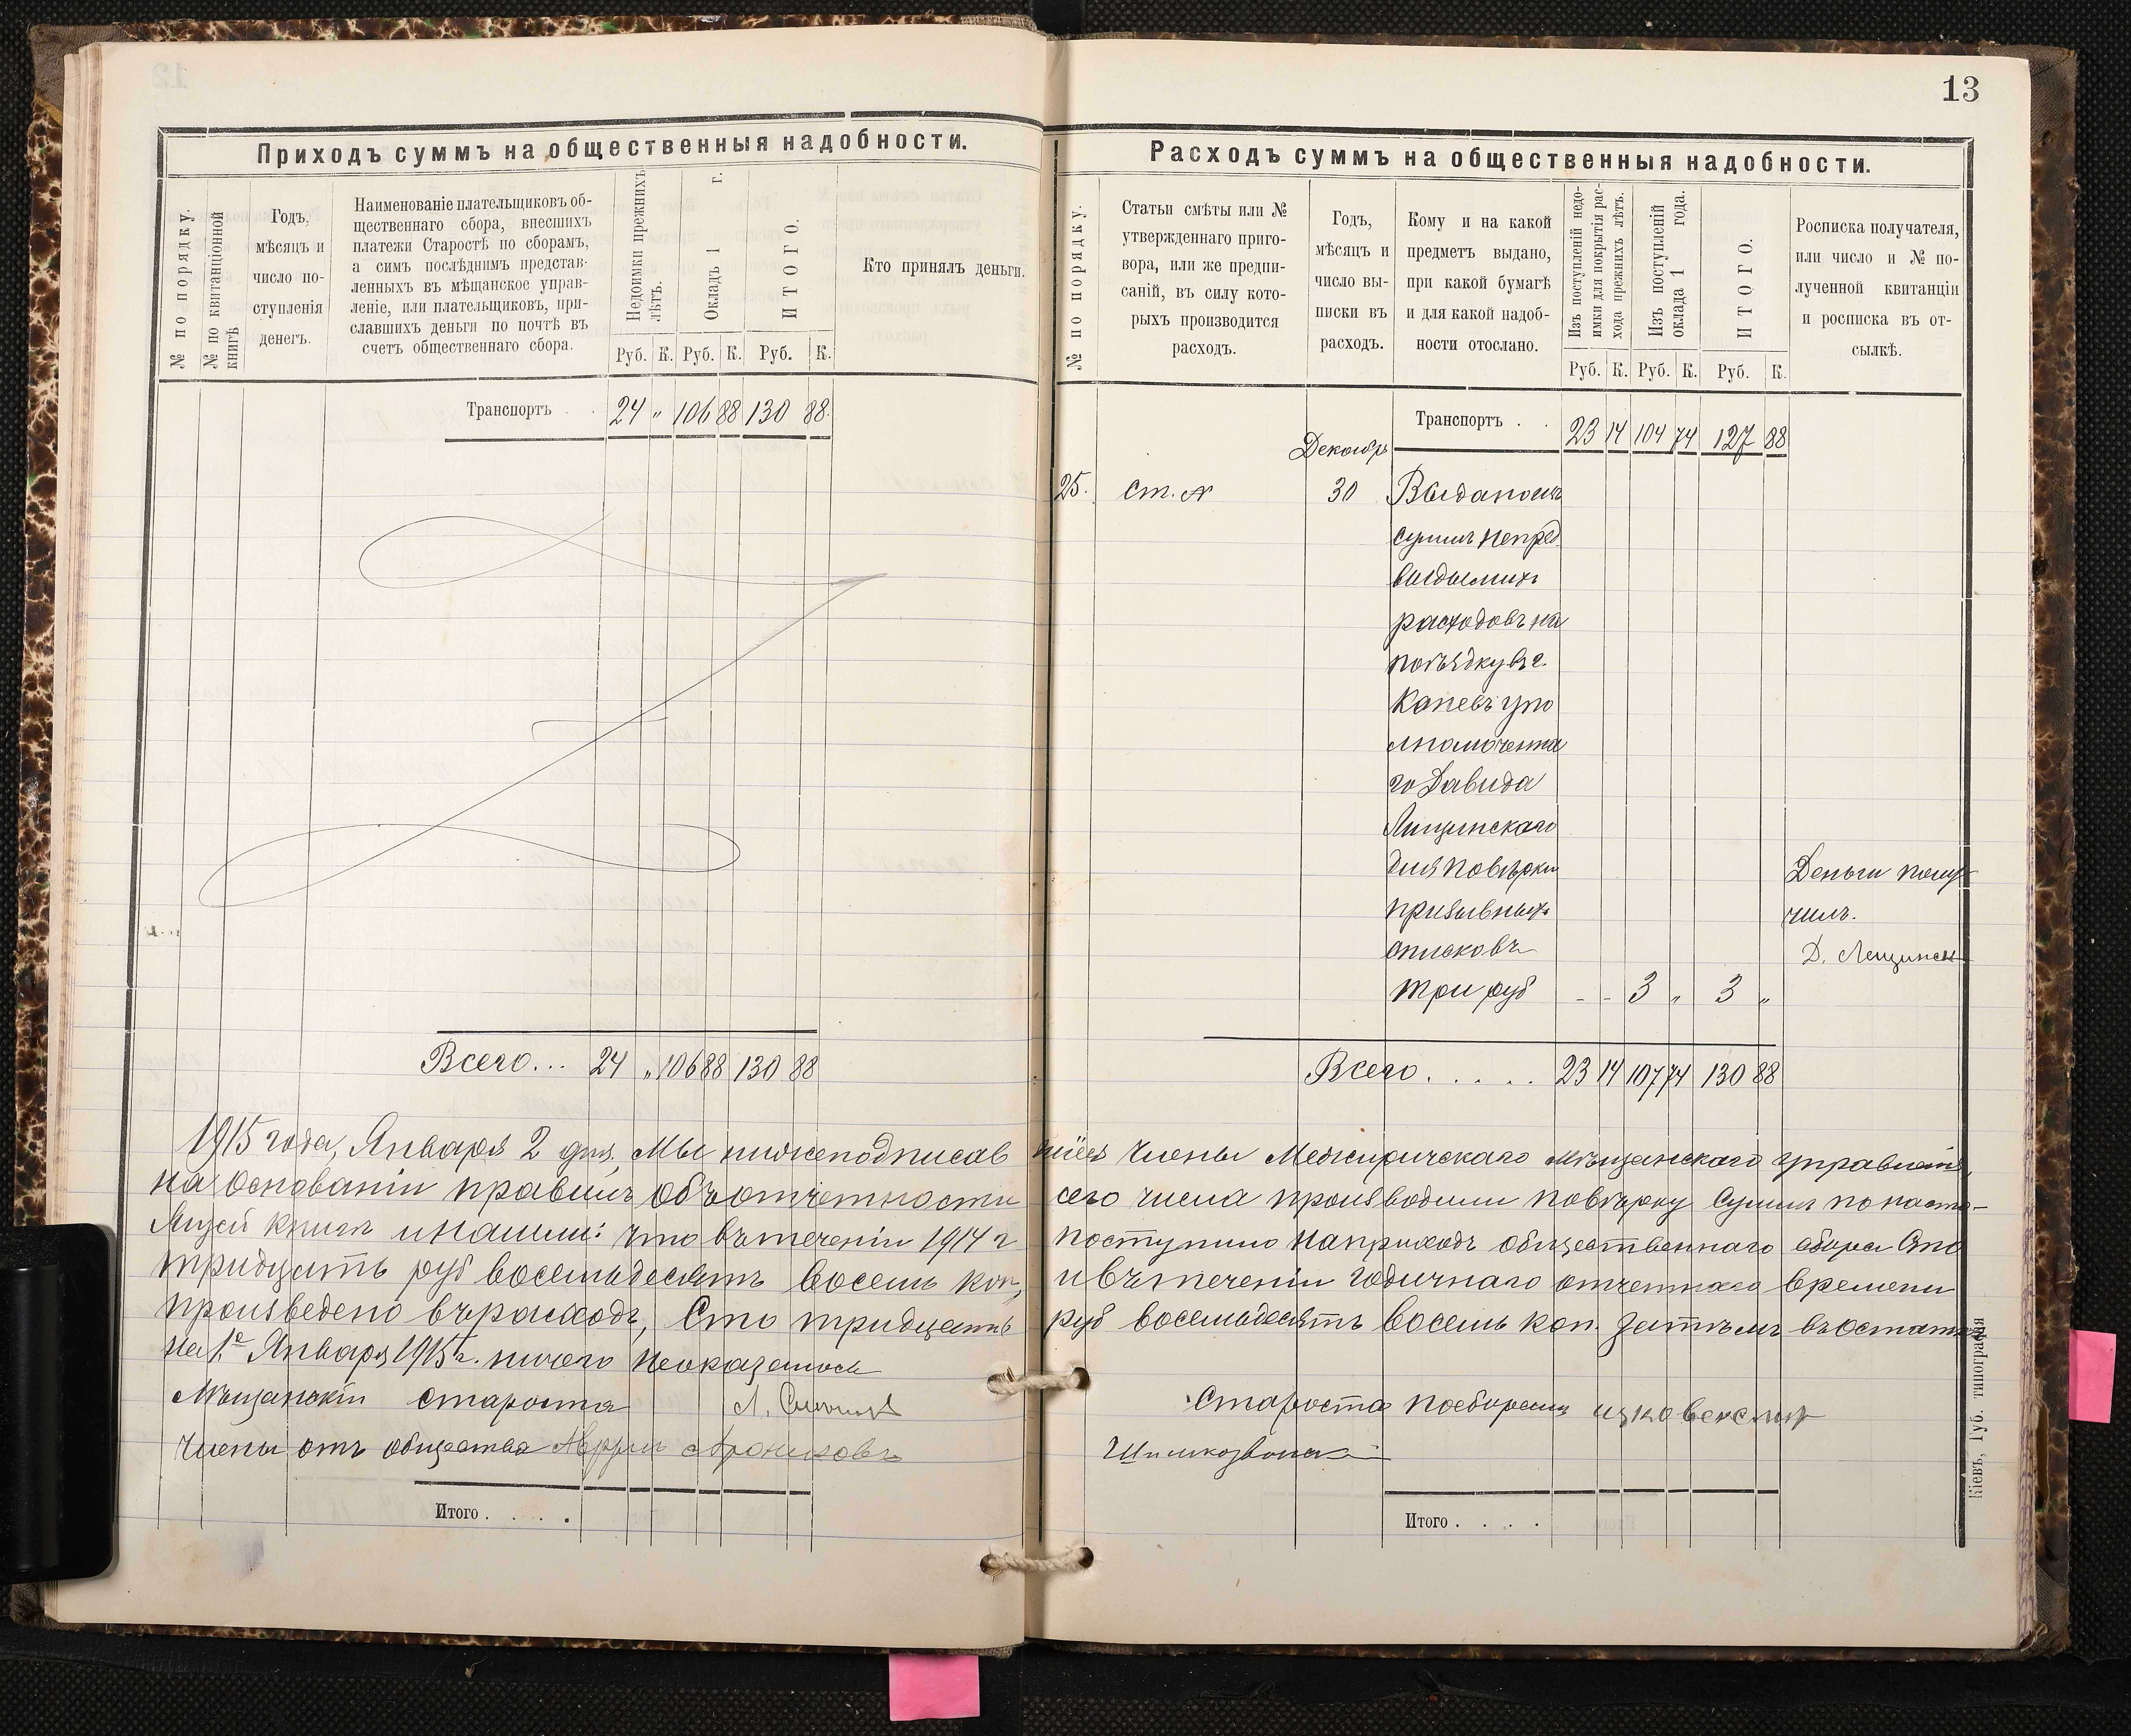 13
Приходъ суммъ на общественныя надобности.
№ по порядку.
№ по квитанціонной
книгѣ
Годъ,
мѣсяцъ и
число по-
ступленія
денегъ.
Наименованіе плательщиковъ об-
щественнаго сбора, внесшихъ
платежи Старостѣ по сборамъ,
а симъ послѣднимъ представ-
ленныхъ въ мѣщанское управ-
леніе, или плательщиковъ, при-
славшихъ деньги по почтѣ въ
счетъ общественнаго сбора.
Недоимки прежнихъ
лѣтъ.
Окладъ 1 г.
ИТОГО.
Кто принялъ деньги.
Руб. К. Руб. К. Руб. К.
Транспортъ . . 24 „ 106 88 130 88.
Всего... 24 „ 106 88 130 88
Расходъ суммъ на общественныя надобности.
№ по порядку.
Статьи смѣты или №
утвержденнаго приго-
вора, или же предпи-
саній, въ силу кото-
рыхъ производится
расходъ.
Годъ,
мѣсяцъ и
число вы-
писки въ
расходъ.
Кому и на какой
предметъ выдано,
при какой бумагѣ
и для какой надоб-
ности отослано.
Изъ поступленій недо-
имки для покрытія рас-
хода прежнихъ лѣтъ.
Изъ поступленій
оклада 1 года.
ИТОГО.
Росписка получателя,
или число и № по-
лученной квитанціи
и росписка въ от-
сылкѣ.
Руб. К. Руб. К. Руб. К.
Транспортъ . . 23 14 104 74 127 88
Декабрь
25. ст. 30 Выдано изъ
суммъ непред
видимихъ
расходовъ на
поѣздку въ г.
Каневъ упо
лномоченна
го Давида
Лищинскаго
для повѣрки
призывныхъ
списковъ
три руб - - 3 „ 3 „
Деньги полу
чилъ.
Д. Лещинск
Всего . . . . . 23 14 107 74 130 88
1915 года, Января 2 дня, Мы нижеподписав шіеся Члены Межиричскаго мѣщанскаго управленія,
на основаніи правилъ объ отчетности сего числа производили повѣрку суммъ по насто-
ящей книгѣ и нашли: что въ теченіи 1914 г поступило на приходъ общественнаго сбора Сто
тридцать руб восемьдесятъ восемь коп, и въ теченіи годичнаго отчетнаго времени
произведено въ расходъ, Сто тридцать руб восемьдесятъ восемь коп. Затѣмъ въ остатк
на 1е Января 1915 г. ничего не оказалось
Мѣщанскій староста Староста по сборамъ
Члены отъ общества
Итого . . . .
Итого . . . .
Кіевъ, Губ. типографія